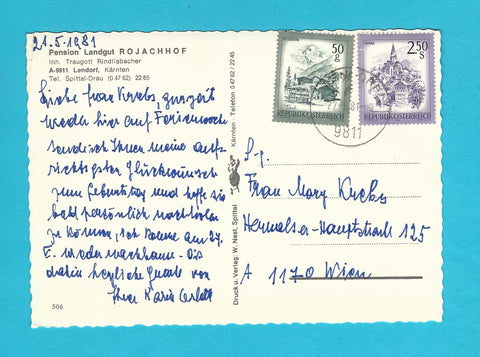 21.5.1981
Pension Landgut ROJACHHOF
Inh. Traugott Rindlisbacher
A-9811 Lendorf, Kärnten
Tel. Spittal-Drau (0 47 62) 22 65
Liebe Frau Krebs, zurzeit
wieder hier auf Ferienwoche
sende ich Ihnen meine auf-
richtigsten Glückwünsche
zum Geburtstag und hoffe sie
bald persönlich nachholen
zu können, ich komme am 27.
5. wieder nachhause. Bis
dahin herzliche Grüße von
Ihrer Karin
506
Druck u. Verlag: W. Nast, Spittal
Kärnten - Telefon 0 47 62/22 45
50
g
REPUBLIK ÖSTERREICH
2.50
S
REPUBLIK ÖSTERREICH
9811
Frau Mary Krebs
Hernalser-Hauptstraße 125
A 1170 Wien